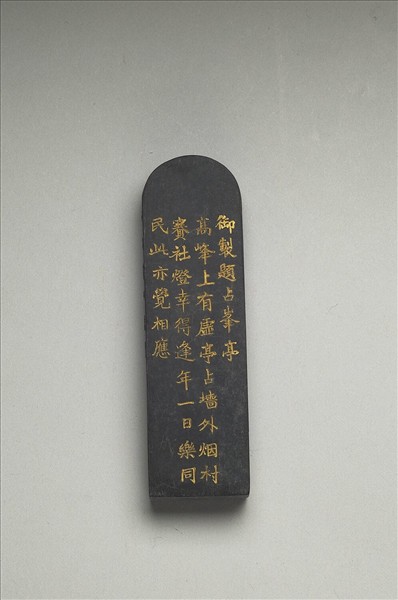 御製題占峯亭
高峰上有虛亭占墻外烟村
賽社燈幸得逢年一日樂同
民此亦覺相應